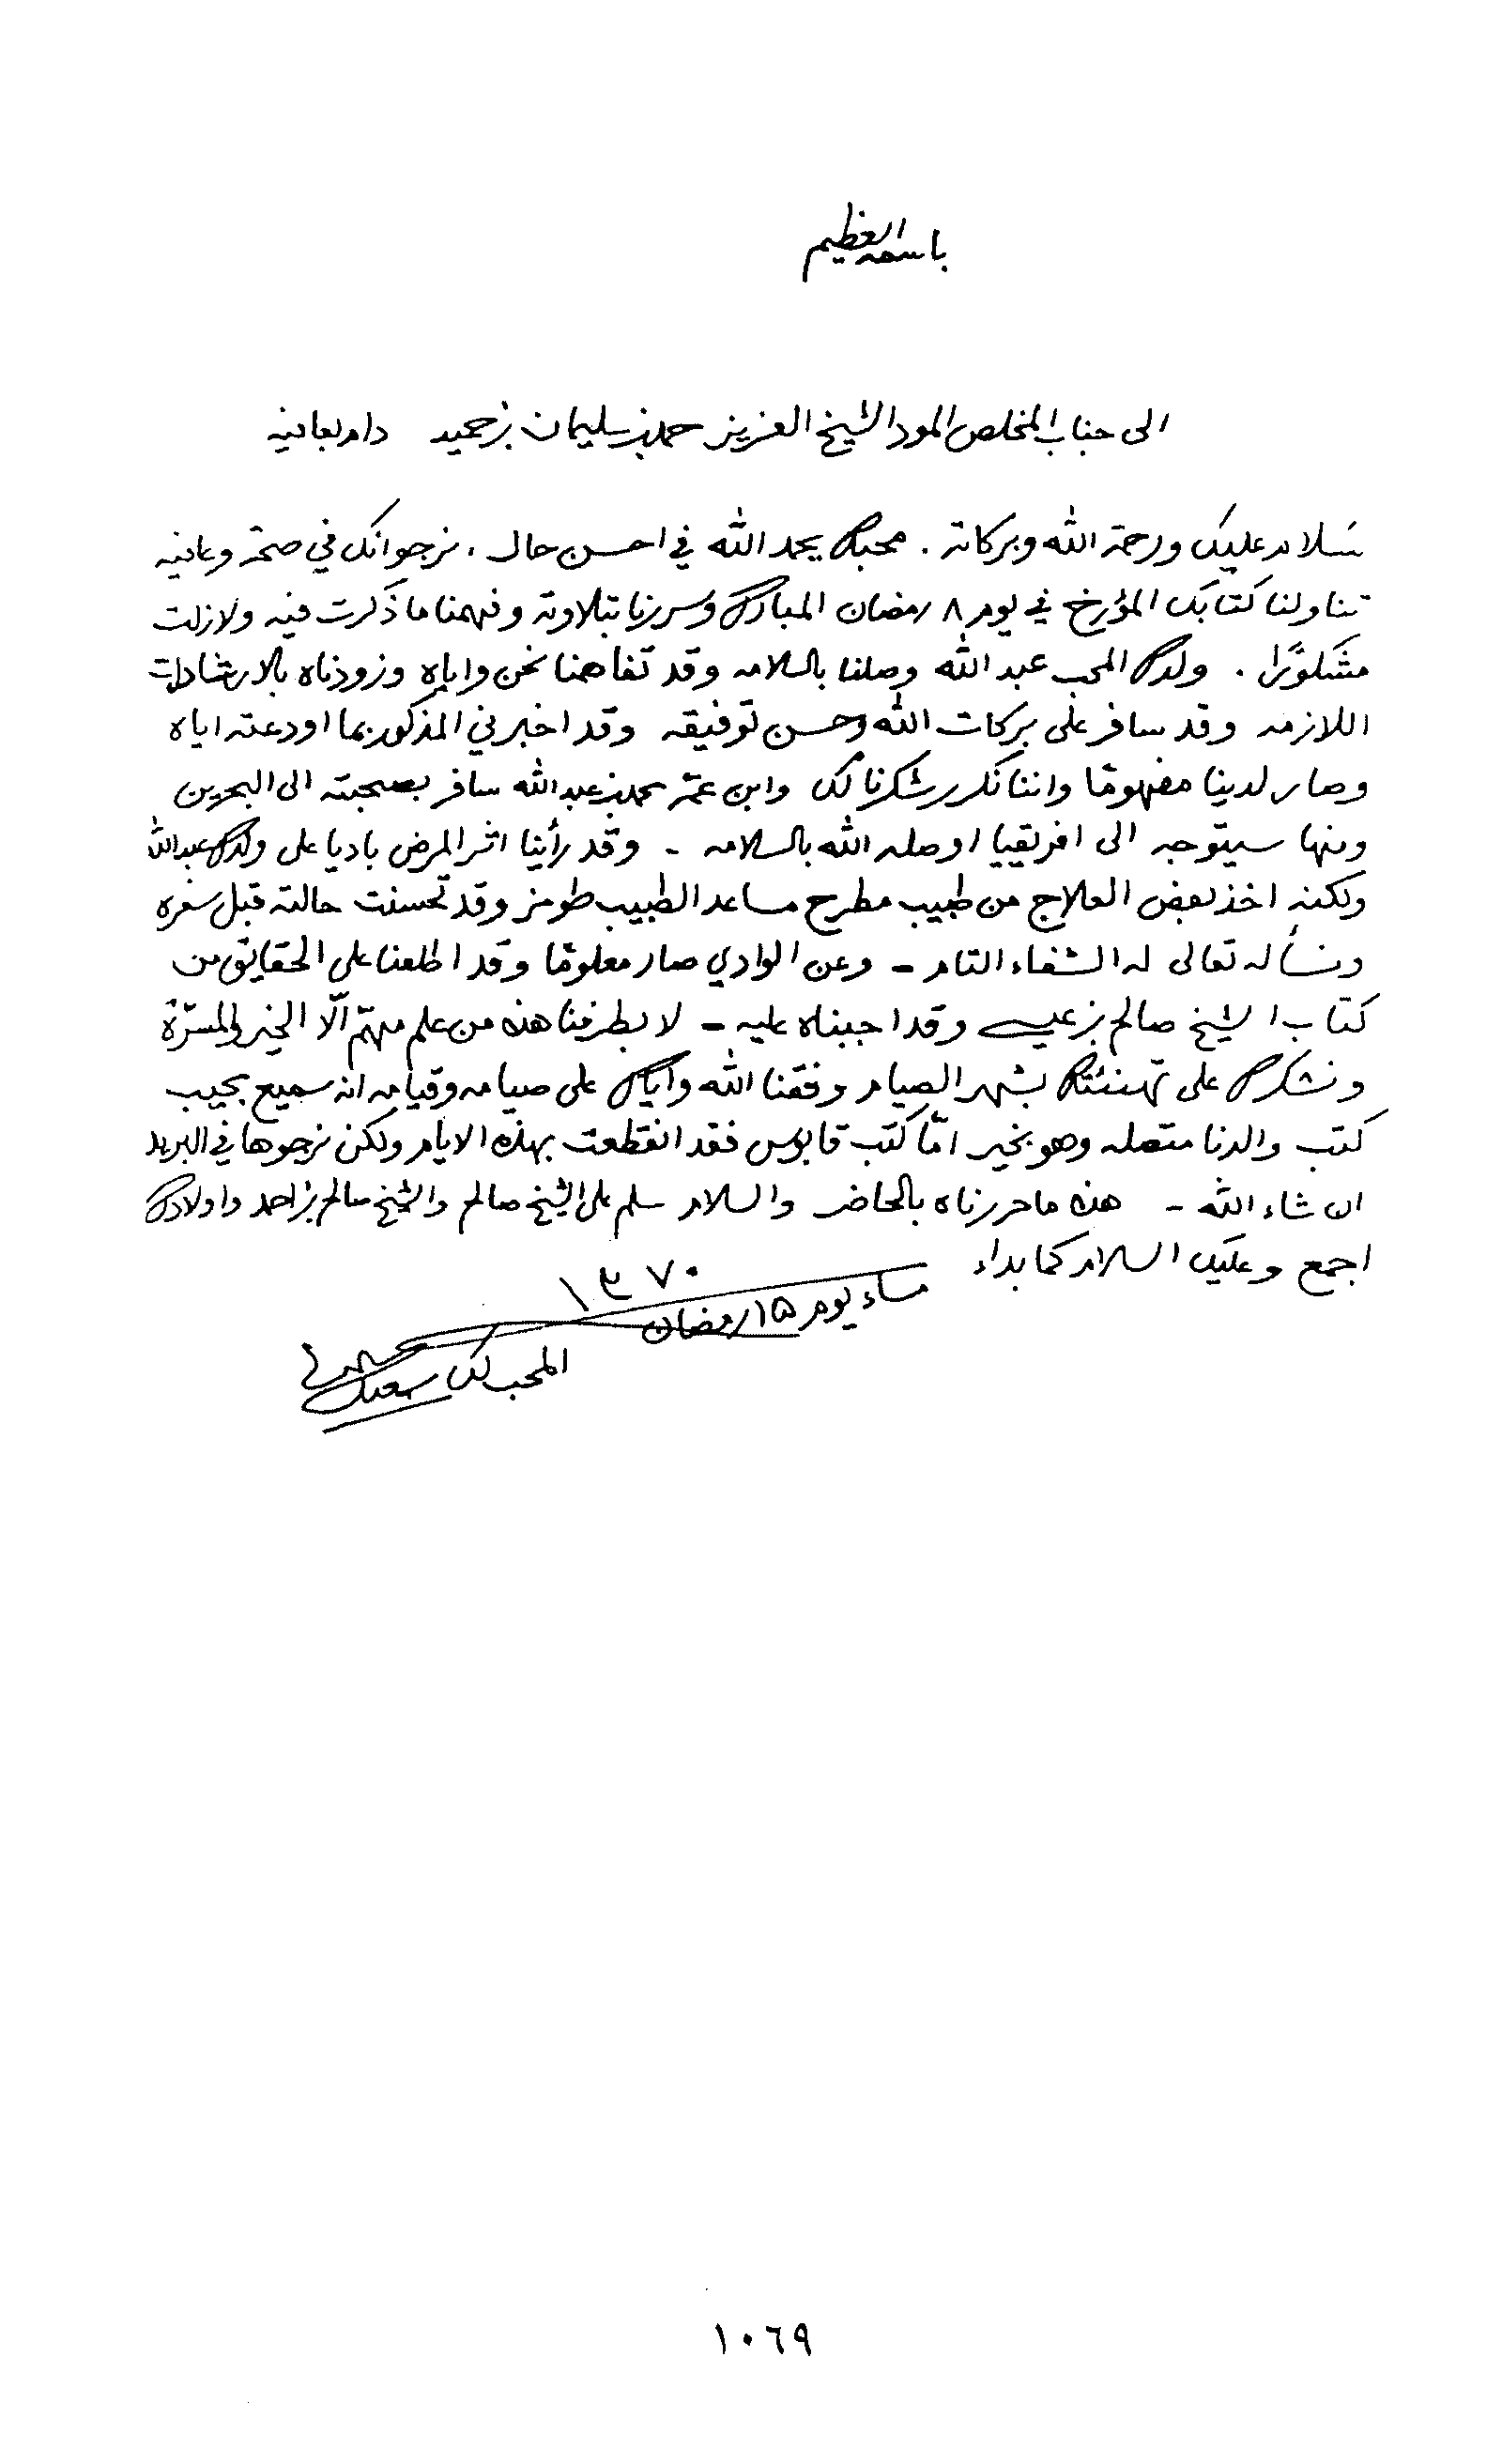 باسمه العظيم
الى جناب المخلص المود الشيخ العزيز حمد بن سليمان بن حميد دام بعافيه
سلام عليك ورحمة الله وبركاته . محبك بحمد الله في احسن حال ، نرجو انك في صحة وعافيه
تناولنا كتابك المؤرخ في يوم ٨ رمضان المبارك وسررنا بتلاوته وفهمنا ما ذكرت فيه ولا زلت
مشكورًا . ولدك المحب عبد الله وصلنا بالسلامه وقد تفاهمنا نحن واياه وزودناه بالارشادات
اللازمه وقد سافر على بركات الله وحسن توفيقه وقد اخبرني المذكور بما اودعته اياه
وصار لدينا مفهومًا واننا نكرر شكرنا لك وابن عمّه محمد بن عبد الله سافر بصحبته الى البحرين
ومنها سيتوجه الى افريقيا اوصله الله بالسلامه - وقد رأينا اثر المرض باديا على ولدك عبد الله
ولكنه اخذ بعض العلاج من طبيب مطرح مساعد الطبيب طومز وقد تحسنت حالته قبل سفره
ونسأله تعالى له الشفاء التام - وعن الوادي صار معلومًا وقد اطلعنا على الحقايق من
كتاب الشيخ صالح بن عيسى وقد اجبناه عليه - لا بطرفنا هذه من علم مهمّ الّا الخير والمسرّة
ونشكرك على تهنئتك بشهر الصيام وفقنا الله واياك على صيامه وقيامه انه سميع مجيب
كتب والدنا متصله وهو بخير امّا كتب قابوس فقد انقطعت بهذه الايام ولكن نرجوها في البريد
ان شاء الله - هذه ما حررناه بالحاضر والسلام سلم على الشيخ صالح والشيخ سالم بن احمد واولادك
اجمع وعليك السلام كما بداء
مساء يوم ١٥ رمضان ١٣٧٠
المحب لك سعيد
١٠٦٩